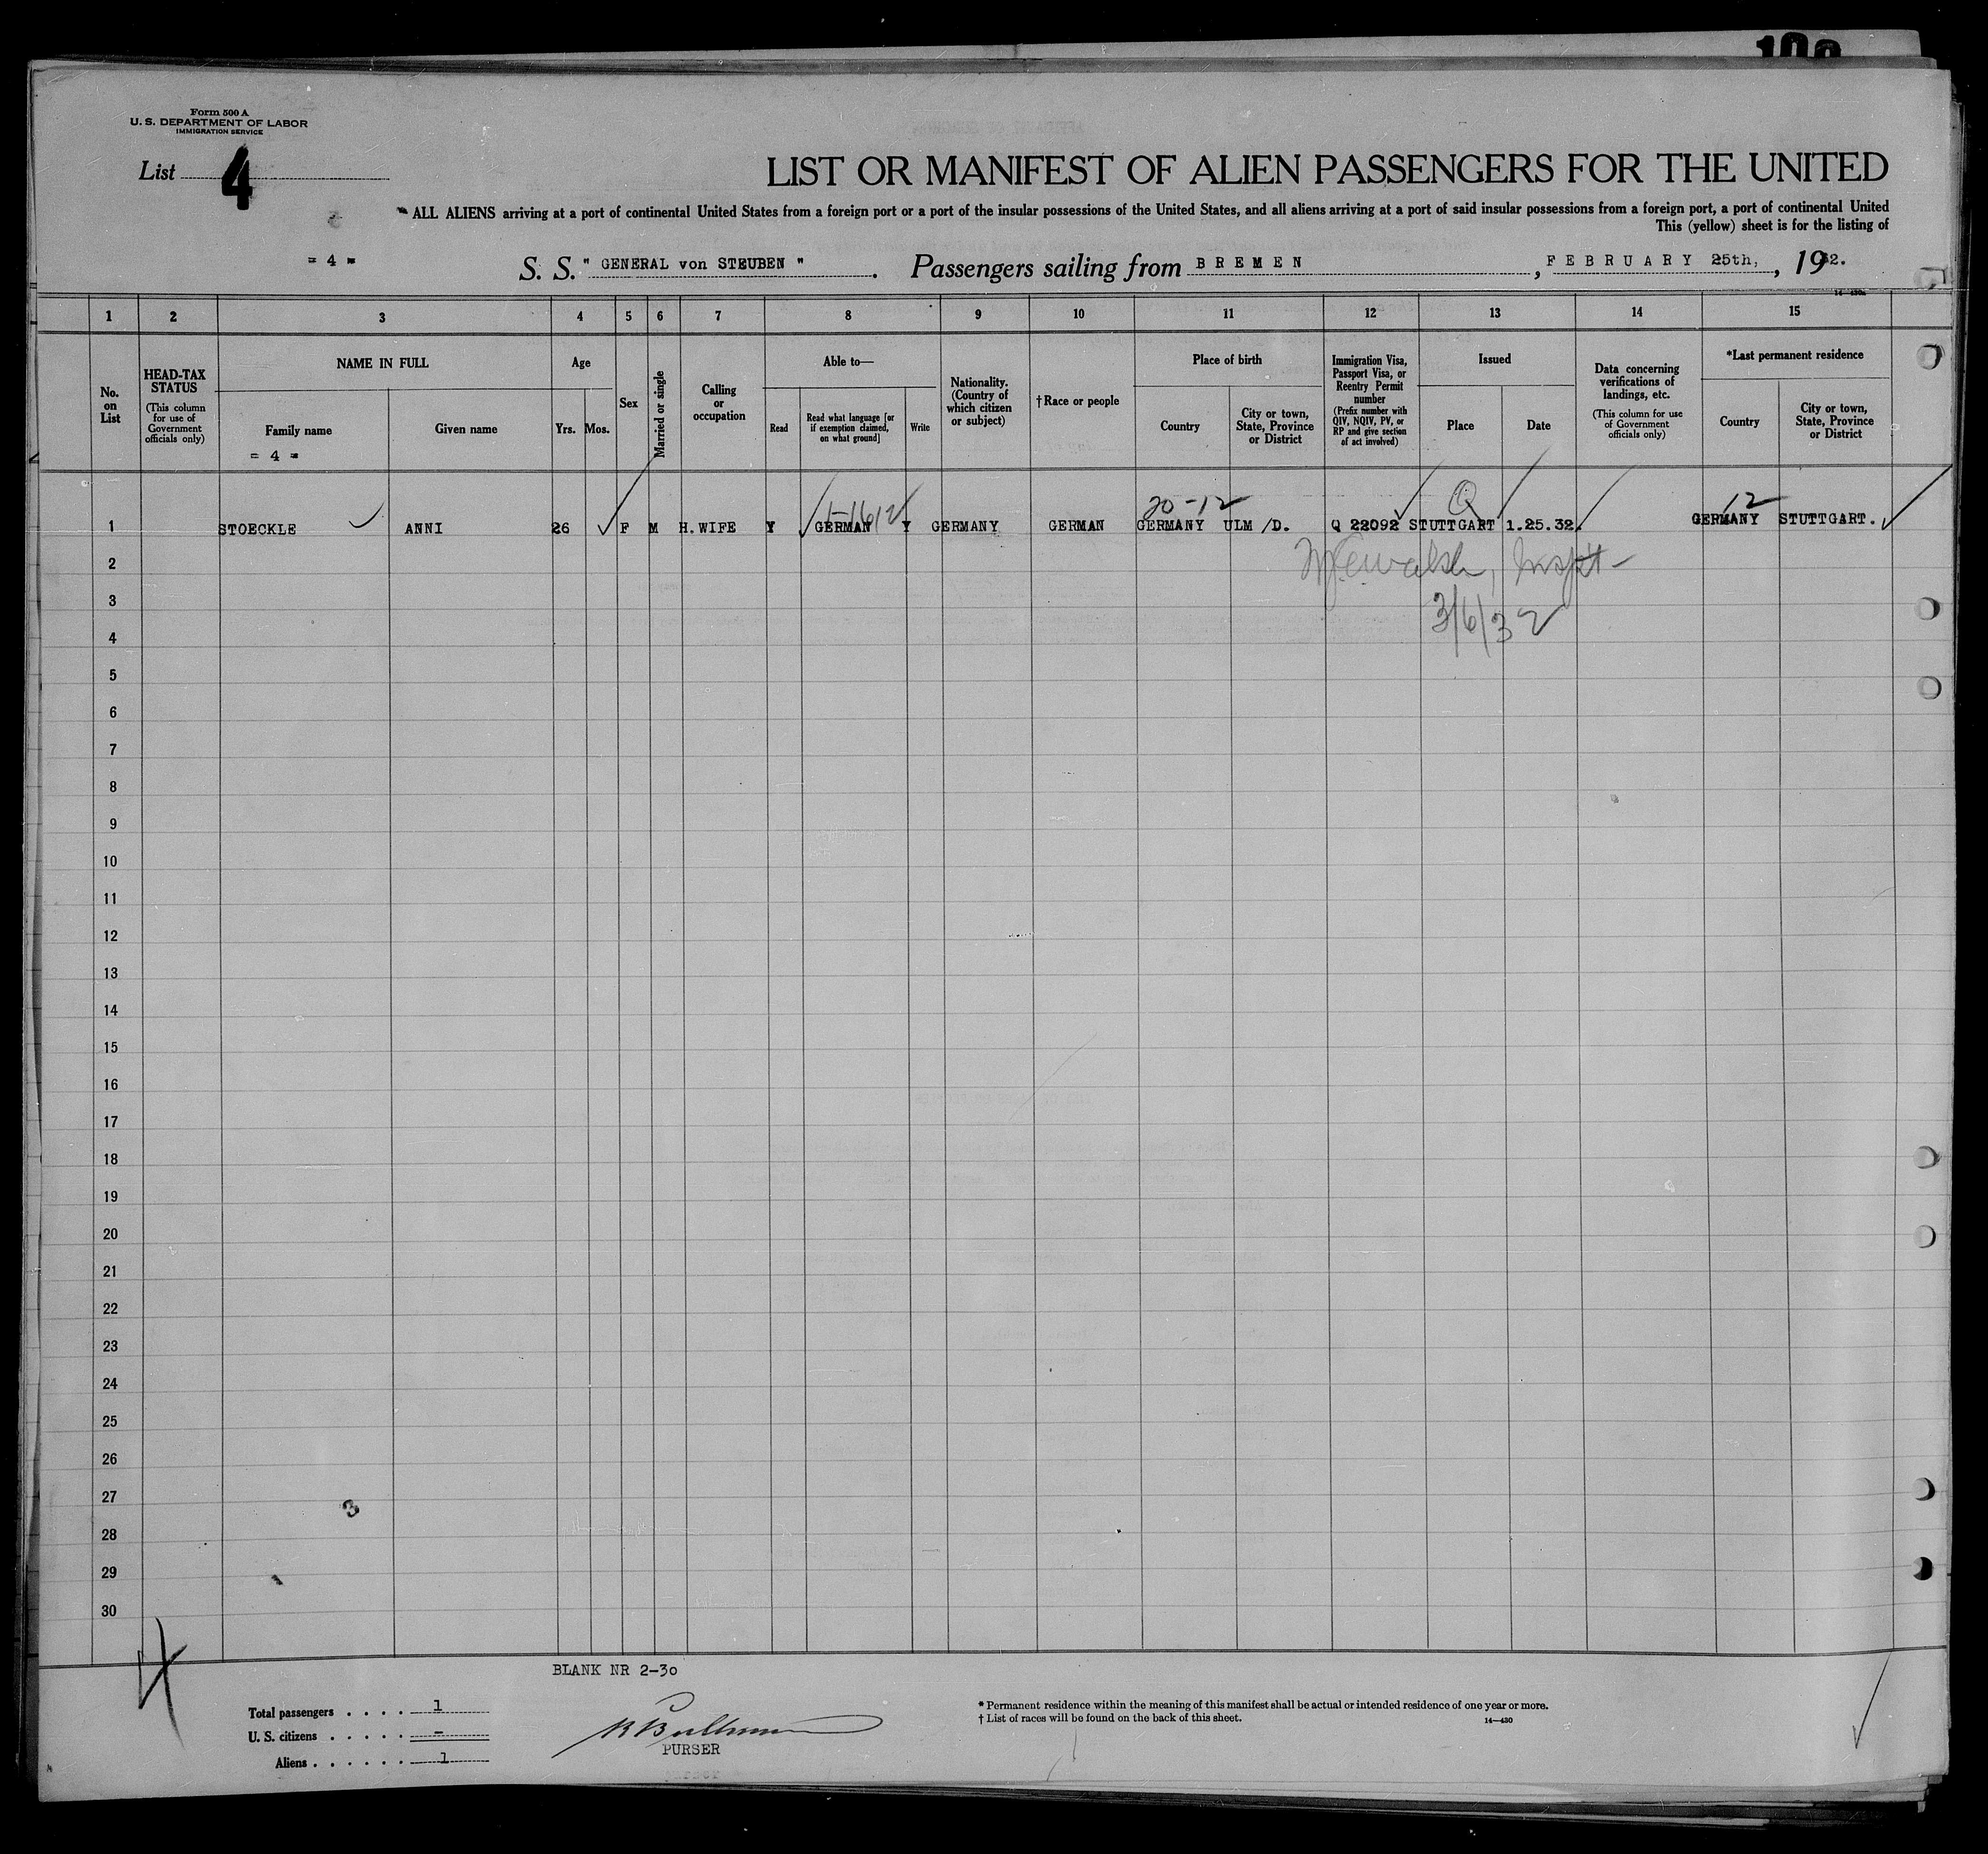 Form 500 A
U. S. DEPARTMENT OF LABOR
IMMIGRATION SERVICE
List 4
LIST OR MANIFEST OF ALIEN PASSENGERS FOR THE UNITED
ALL ALIENS arriving at a port of continental United States from a foreign port or a port of the insular possessions of the United States, and all aliens arriving at a port of said insular possessions from a foreign port, a port of continental United
This (yellow) sheet is for the listing of
= 4 =
S. S. " GENERAL von STEUBEN ". Passengers sailing from BREMEN, FEBRUARY 25th, , 1932.
14—430a
1 2 3 4 5 6 7 8 9 10 11 12 13 14 15
No. on List
HEAD-TAX STATUS (This column for use of Government officials only)
NAME IN FULL
Family name
= 4 =
Given name
Age
Yrs. Mos.
Sex
Married or single
Calling or occupation
Able to—
Read
Read what language [or if exemption claimed, on what ground]
Write
Nationality. (Country of which citizen or subject)
†Race or people
Place of birth
Country
City or town, State, Province or District
Immigration Visa, Passport Visa, or Reentry Permit number (Prefix number with QIV, NQIV, PV, or RP and give section of act involved)
Issued
Place
Date
Data concerning verifications of landings, etc. (This column for use of Government officials only)
*Last permanent residence
Country
City or town, State, Province or District
20-12 Q 12
1 STOECKLE ANNI 26 F M H.WIFE Y GERMAN Y GERMANY GERMAN GERMANY ULM /D. Q 22092 STUTTGART 1.25.32. GERMANY STUTTGART.
2 Walsh, Inspt
3 3/6/32
4
5
6
7
8
9
10
11
12
13
14
15
16
17
18
19
20
21
22
23
24
25
26
27
28
29
30
3
4
BLANK NR 2-30
Total passengers . . . . 1
U. S. citizens . . . . . -
Aliens . . . . . . 1
PURSER
* Permanent residence within the meaning of this manifest shall be actual or intended residence of one year or more.
† List of races will be found on the back of this sheet.
14—430